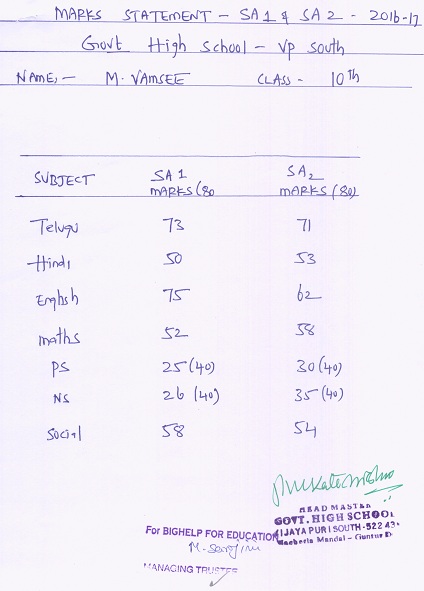 MARKS STATEMENT - SA 1 & SA 2 - 2016-17
Govt High School - VP South
NAME, - M. VAMSEE CLASS - 10 Th
SUBJECT SA 1 MARKS (80 SA 2 MARKS (80)
Telugu 73 71
Hindi 50 53
English 75 62
maths 52 58
PS 25 (40) 30 (40)
NS 26 (40) 35 (40)
Social 58 54
HEAD MASTER
GOVT. HIGH SCHOOL
IJAYA PURI SOUTH-522 43
Macherla Mandal - Guntur D
For BIGHELP FOR EDUCATION
MANAGING TRUSTEE